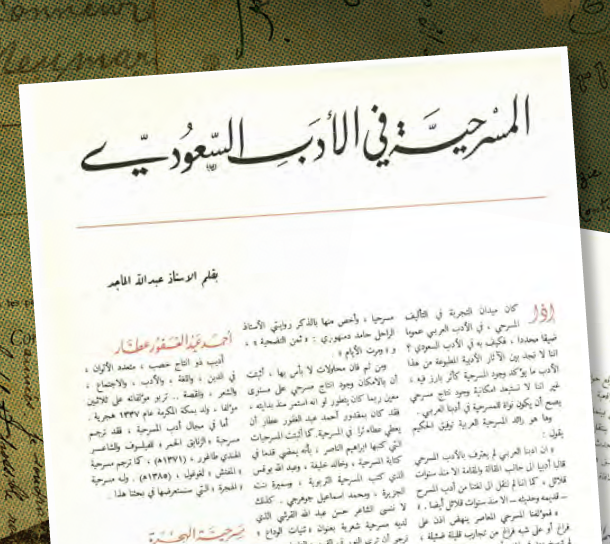 المسْرحيَّة في الأدَب السّعُوديّ
بقلم الاستاذ عبدالله الماجد
إذا كان ميدان التجربة في التأليف
المسرحي ، في الأدب العربي عموما
ضيقا محددا ، فكيف به في الأدب السعودي ؟
اننا لا نجد بين الآثار الأدبية المطبوعة من هذا
الأدب ما يؤكد وجود المسرحية كأثر بارز فيه ،
غير اننا لا نستبعد امكانية وجود نتاج مسرحي
يصح أن يكون نواة للمسرحية في أدبنا العربي .
وها هو رائد المسرحية العربية توفيق الحكيم
يقول :
« ان أدبنا العربي لم يعترف بالأدب المسرحي
قالبا أدبيا الى جانب المقالة والمقامة الا منذ سنوات
قلائل ، كما اننا لم ننقل الى لغتنا من أدب المسرح
ـ قديمه وحديثه ـ الا منذ سنوات قلائل أيضا . »
« فمؤلفنا المسرحي المعاصر ينهض اذن على
فراغ أو على شبه فراغ من تجارب قليلة ضئيلة ،
مسرحيا ، وأخص منها بالذكر روايتي الأستاذ
الراحل حامد دمنهوري : « ثمن التضحية » ،
و « ومرت الأيام » .
ومن ثم فان محاولات لا بأس بها ، أثبتت
أن بالامكان وجود انتاج مسرحي على مستوى
معين ربما كان يتطور لو انه استمر منذ بدايته ،
فقد كان بمقدور أحمد عبد الغفور عطار أن
يعطي عطاء ثرا في المسرحية كما أثبتت المسرحيات
التي كتبها ابراهيم الناصر ، بأنه يمضي قدما في
كتابة المسرحية ، وخالد خليفة ، وعبد الله بوقس
الذي كتب المسرحية التربوية ، وسميرة بنت
الجزيرة ، ومحمد اسماعيل جوهرجي . كذلك
لا ننسى الشاعر حسن عبد الله القرشي الذي
لديه مسرحية شعرية بعنوان « ثنيات الوداع »
أحمد عَبْد الغَفُور عطَّار
أديب ذو انتاج خصب ، متعدد الألوان ،
في الدين ، واللغة ، والأدب ، والاجتماع ،
والشعر ، والقصة .. تربو مؤلفاته على ثلاثين
مؤلفا ، ولد بمكة المكرمة عام ١٣٣٧ هجرية .
أما في مجال أدب المسرحية ، فقد ترجم
مسرحية « الزنابق الحمر » للفيلسوف والشاعر
الهندي طاغور ، (١٣٧١ه) ، كما ترجم مسرحية
« المفتش » لغوغول ، (١٣٨٥ه) . وله مسرحية
« الهجرة » التي سنستعرضها في بحثنا هذا .
مَسْرحيَّة الهجْرَة